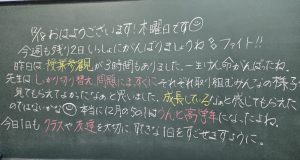 おはようございます！木曜日です☺
今週も残り2日いっしょにがんばりましょうねファイト!!
昨日は授業参観が3時間もありました。一生けん命がんばったね。
先生はしっかり切り替え問題にまっすぐにそれぞれ取り組むみんなの様子
見てもらえてよかったなぁと思いました。成長してるなぁと感じてもらえた
のではないかな☺本当に12月の5の1はうんと高学年になったよね。
今日1日もクラスや友達を大切に、すてきな1日をすごせますように。